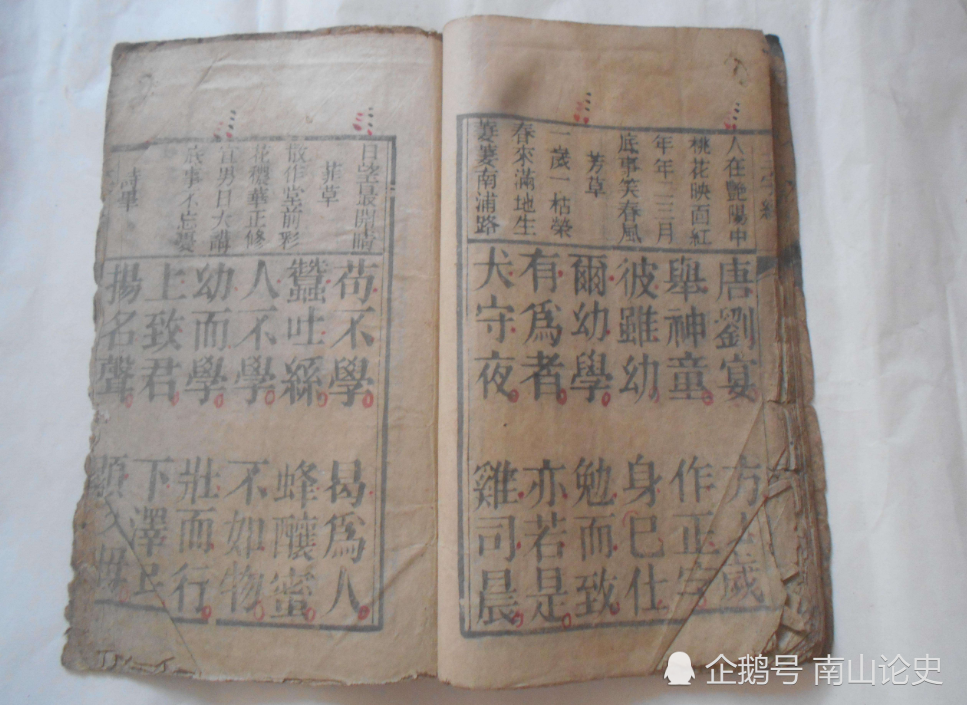 三字經
人在艷陽中
桃花映面紅
年年二三月
底事笑春風
芳草
一歲一枯榮
春來滿地生
萋萋南浦路
唐劉宴 方七歲
舉神童 作正字
彼雖幼 身巳仕
爾幼學 勉而致
有爲者 亦若是
犬守夜 雞司晨
草
堂前彩
花
宜男日
底事不忘憂
苟不學 曷爲人
蠶吐絲 蜂釀蜜
人不學 不如物
幼而學 壯而行
上致君 下澤民
揚名聲 顯父母
企鹅号 南山论史